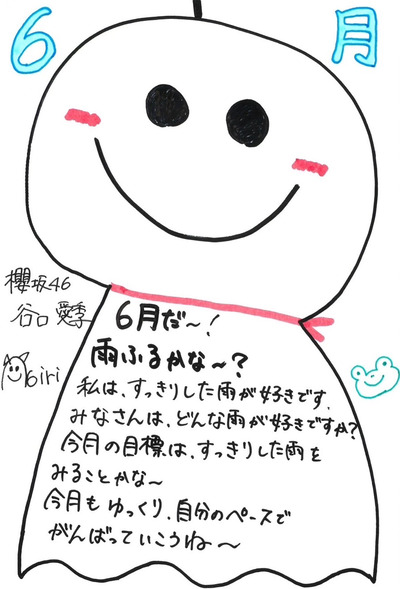 6月
櫻坂46
谷口愛季
airi
6月だ〜!
雨ふるかな〜?
私は、すっきりした雨が好きです。
みなさんは、どんな雨が好きですか?
今月の目標は、すっきりした雨を
みることかな〜
今月もゆっくり、自分のペースで
がんばっていこうね〜